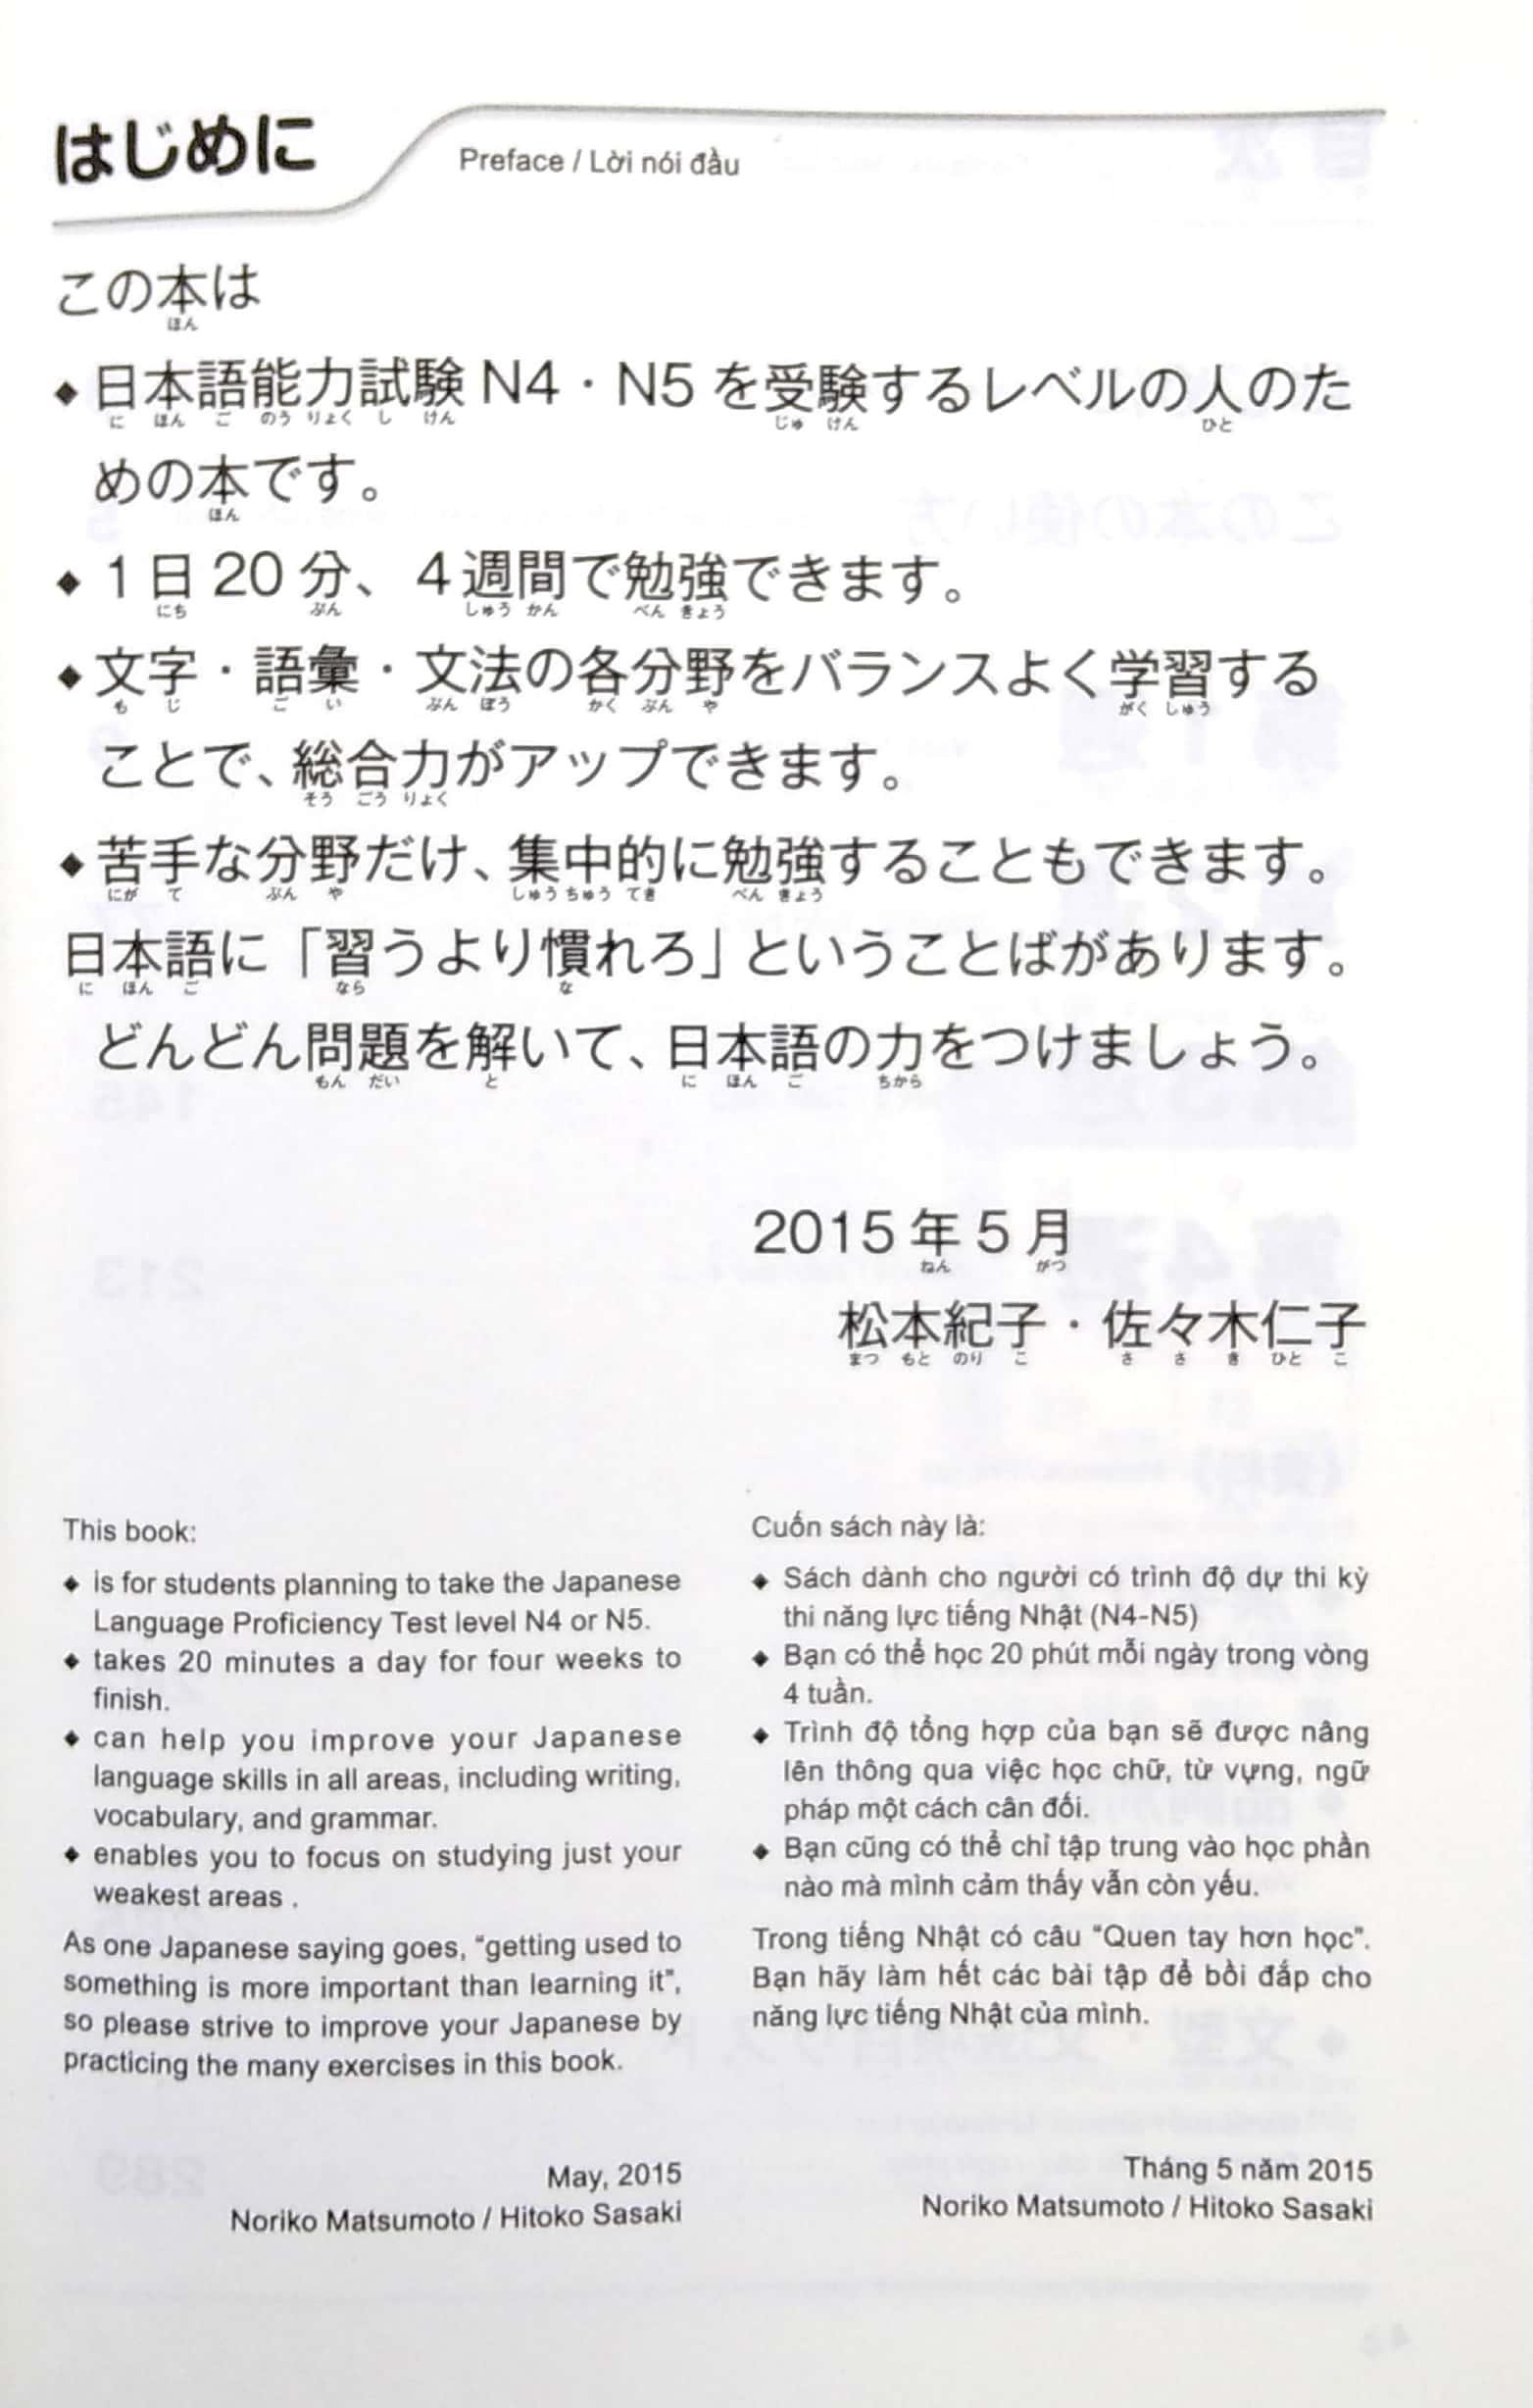 はじめに
Preface / Lời nói đầu
この本は
ほん
◆ 日本語能力試験 N4・N5 を受験するレベルの人のた
に ほん ご のう りょく し けん じゅ けん ひと
めの本です。
ほん
◆ 1日20分、4週間で勉強できます。
にち ぷん しゅう かん べん きょう
◆ 文字・語彙・文法の各分野をバランスよく学習する
も じ ご い ぶん ぽう かく ぶん や がく しゅう
ことで、総合力がアップできます。
そう ごう りょく
◆ 苦手な分野だけ、集中的に勉強することもできます。
にが て ぶん や しゅう ちゅう てき べん きょう
日本語に「習うより慣れろ」ということばがあります。
に ほん ご なら な
どんどん問題を解いて、日本語の力をつけましょう。
もん だい と に ほん ご ちから
2015年5月
ねん がつ
松本紀子・佐々木仁子
まつ もと のり こ さ さ き ひと こ
This book:
◆ is for students planning to take the Japanese
Language Proficiency Test level N4 or N5.
◆ takes 20 minutes a day for four weeks to
finish.
◆ can help you improve your Japanese
language skills in all areas, including writing,
vocabulary, and grammar.
◆ enables you to focus on studying just your
weakest areas .
As one Japanese saying goes, “getting used to
something is more important than learning it”,
so please strive to improve your Japanese by
practicing the many exercises in this book.
May, 2015
Noriko Matsumoto / Hitoko Sasaki
Cuốn sách này là:
◆ Sách dành cho người có trình độ dự thi kỳ
thi năng lực tiếng Nhật (N4-N5)
◆ Bạn có thể học 20 phút mỗi ngày trong vòng
4 tuần.
◆ Trình độ tổng hợp của bạn sẽ được nâng
lên thông qua việc học chữ, từ vựng, ngữ
pháp một cách cân đối.
◆ Bạn cũng có thể chỉ tập trung vào học phần
nào mà mình cảm thấy vẫn còn yếu.
Trong tiếng Nhật có câu “Quen tay hơn học”.
Bạn hãy làm hết các bài tập để bồi đắp cho
năng lực tiếng Nhật của mình.
Tháng 5 năm 2015
Noriko Matsumoto / Hitoko Sasaki